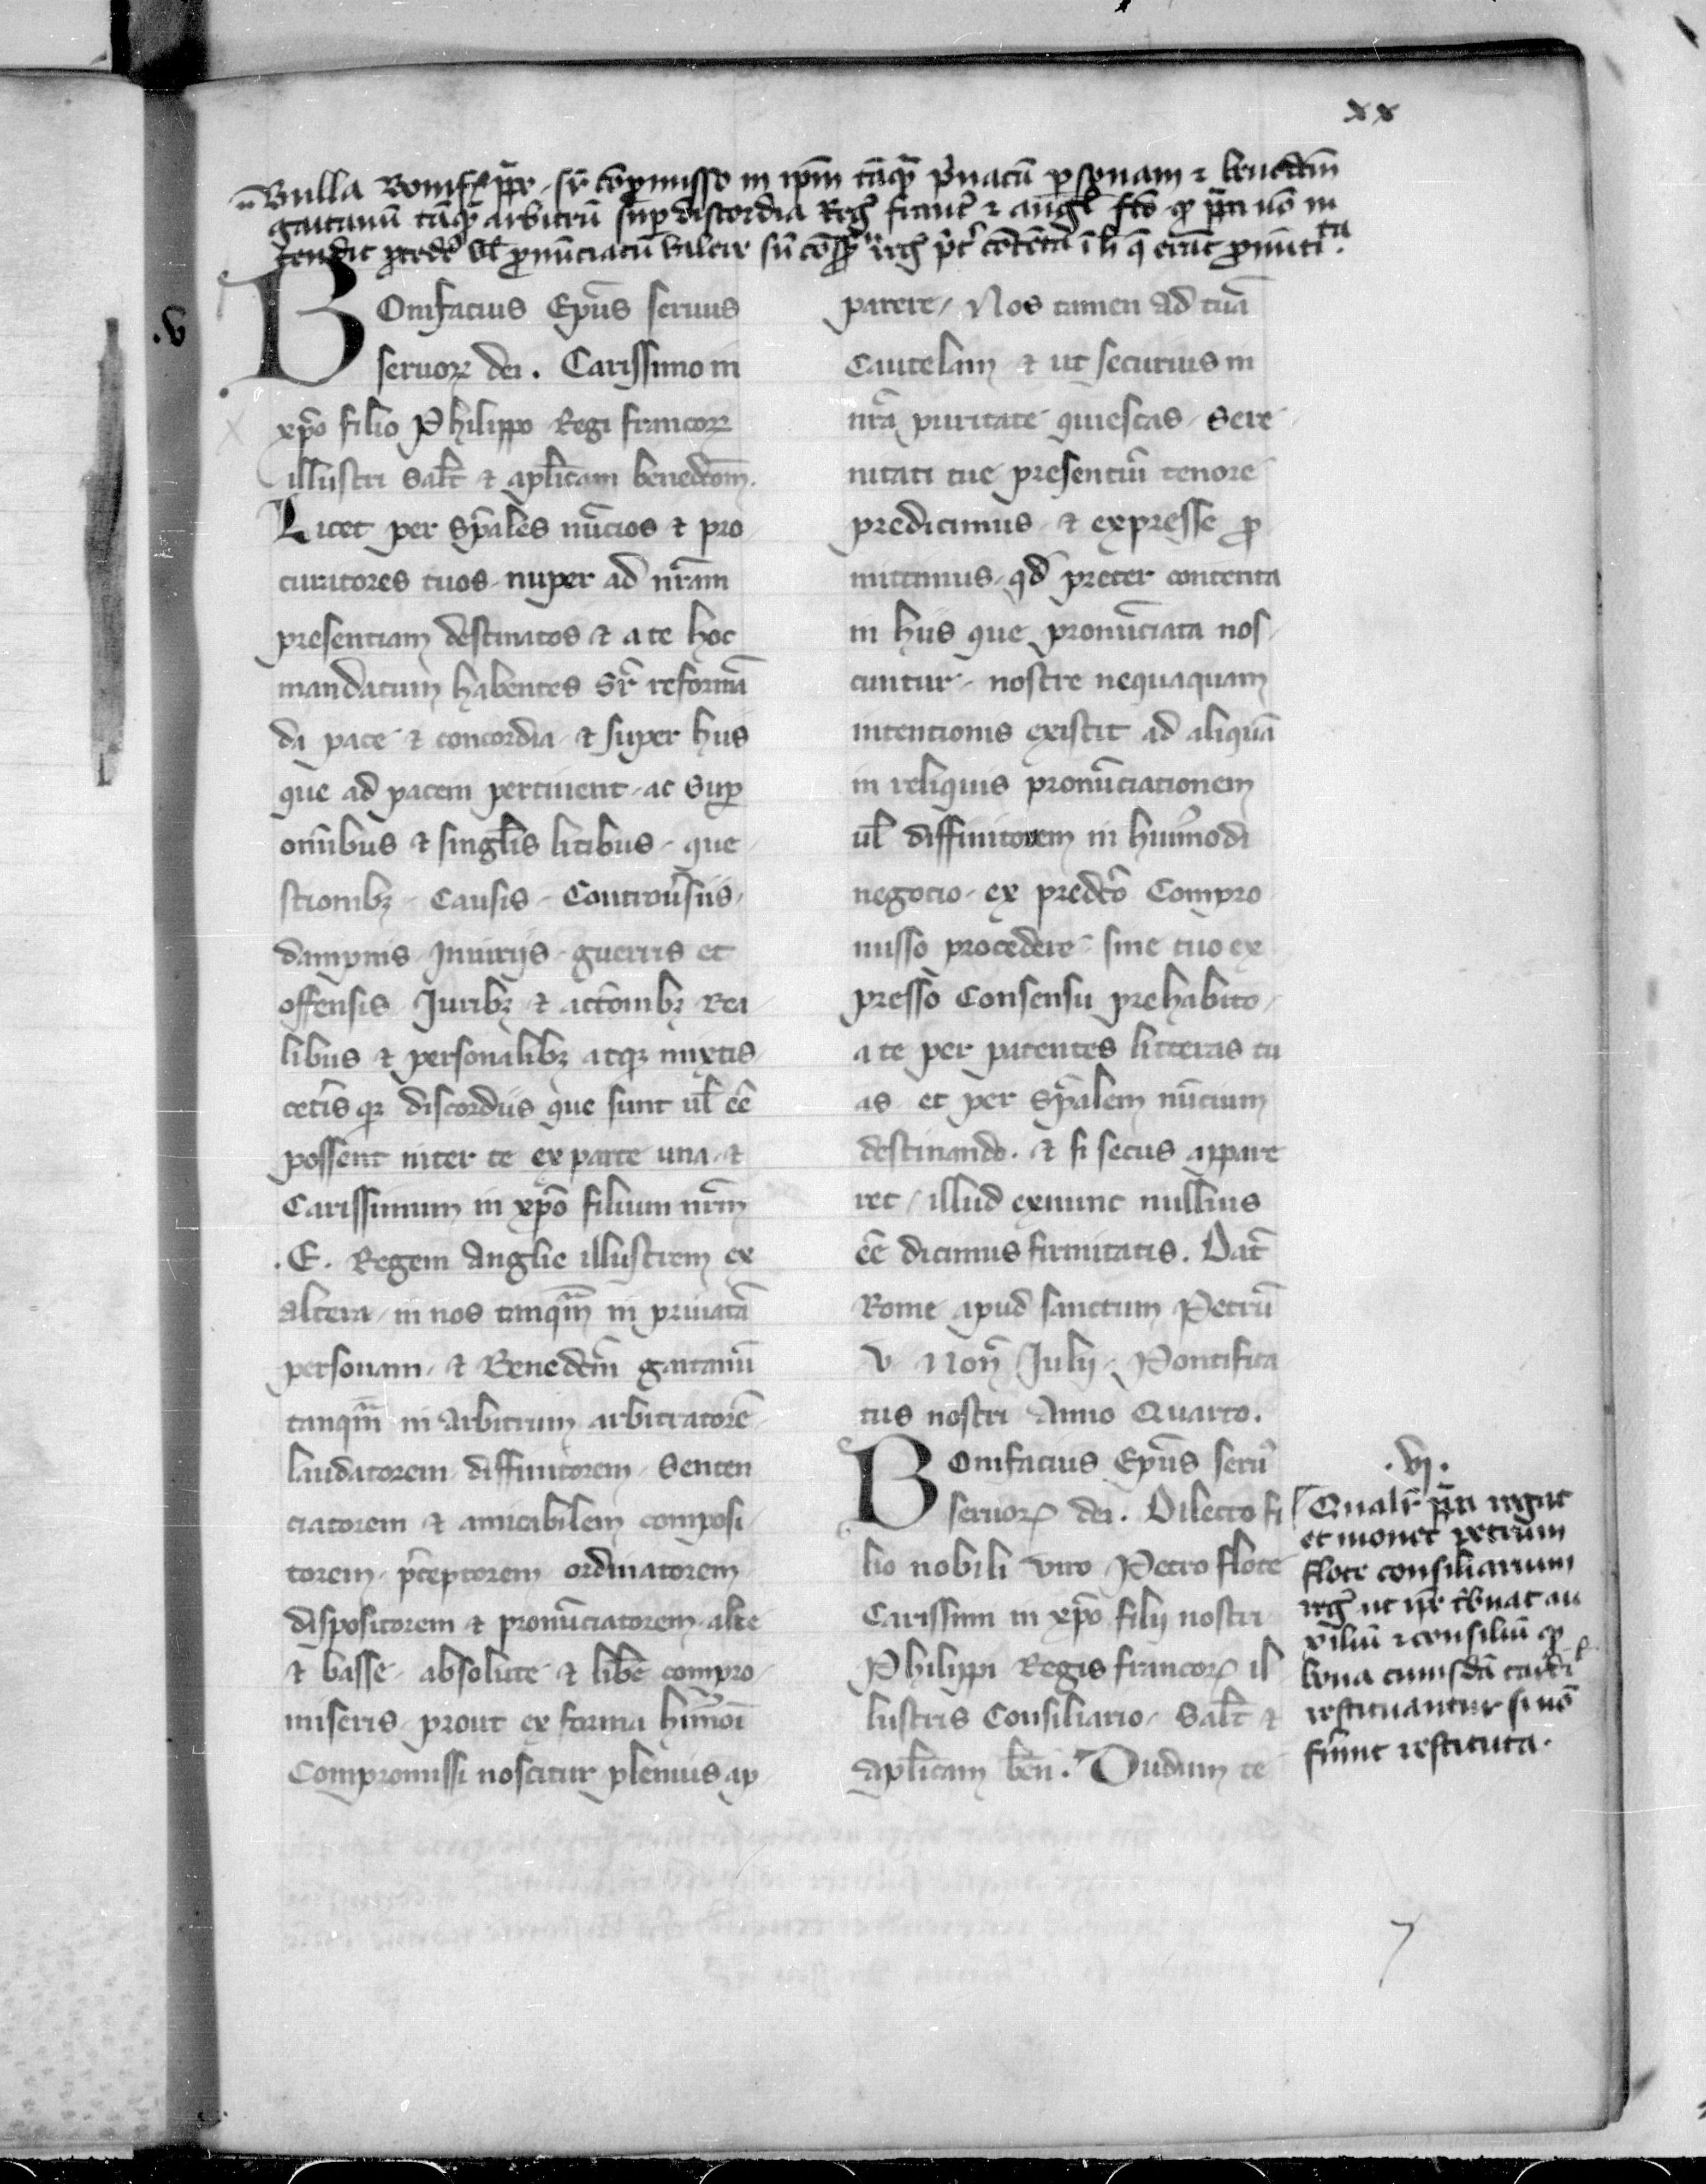 xx
Bulla Bonif̄ ꝑp̄e sr̄ cōpromisso in ip̄m tāqꝫ p̲uatā personam ⁊ benedc̄m
gaitanū tāqꝫ arbitrū suꝑ discordia Reg̃ franc̃ ⁊ angl̃ fc̄o ꝙ papa nō in
tendit proced̃e vl̃ pronūciatū valere sñ cōsensu reg̃ p̃t̃ cōtenta ī h̃ q̃ erāt pronūti ta.
.v
BOnifacius Ep̄us seruus
seruoꝝ dei. Carissimo in
xp̄o filio Philippo Regi francoꝝ
illustri Sal̃t ⁊ apl̃icam benedc̄om̄.
Licet per Sp̄ales nūcios ⁊ pro
curatores tuos nuper ad nr̄am
presentiam destinatos ⁊ a te hoc
mandatum habentes Sr̄ reformā
da pace ⁊ concordia ⁊ super hiis
que ad pacem pertinent ac Suꝑ
om̄ibus ⁊ singl̃is litibus que
stionibꝫ Causis Controũsiis,
dampnis Iniuriis guerris et
offensis Juribꝫ ⁊ actōnibꝫ Rea
libus ⁊ personalibꝫ atqꝫ mixtis
cet̃is qꝫ discordiis que sunt ul̃ eē
possent inter te ex parte una ⁊
Carissimum in xp̄o filium nr̄m
.E. Regem Anglie illustrem ex
altera in nos tanqm̄ in priuatā
personam ⁊ Benedc̄m gaitanū
tanqm̄ in Arbitrum arbitratorē
laudatorem diffinitorem Senten
ciatorem ⁊ amicabilem composi
torem p̃ceptorem ordinatorem
dispositorem ⁊ pronūciatorem alte
⁊ basse absolute ⁊ libē compro
miseris prout ex forma hm̄oi
Compromissi noscitur plenius ap
parere / Nos tamen ad tuā
Cautelam ⁊ ut securius in
nr̄a puritate quiescas Sere
nitati tue presentiū tenore
predicimus ⁊ expresse ꝓ
mittimus qd̃ preter contenta
in hiis que pronūciata nos
cuntur nostre nequaquam
intentionis existit ad aliquā
in reliquis pronūciationem
ul̃ diffinitorem in huiꝰmodi
negocio ex predc̄o Compro
misso procedere sine tuo ex
presso Consensu prehabito
a te per patentes litteras tu
as et per Sp̄alem nūcium
destinando. ⁊ si secus appare
ret / illud exnunc nullius
eē dicimus firmitatis. Dat̃
Rome apud sanctum Petrū
v Non̄ Julij Pontifica
tus nostri Anno Quarto.
BOnifacius Ep̄us seruꝰ
seruoꝝ dei. Dilecto fi
lio nobili viro Petro flote
Carissimi in xp̄o filij nostri
Philippi Regis francoꝝ il
lustris Consiliario Sal̃t ⁊
apl̃icam ben̄. Dudum te
.vj.
Qualr̃ papa rogat
et monet petrum
flote consiliarium
reg̃ ut ip̃e t̃buat au
xiliū ⁊ consiliū ꝙ
bona cuiusdā cardi
restituantur si nō
fu̾int restituta.
7